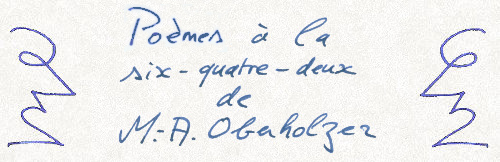 Poèmes à la
six-quatre-deux
de
M.-A. Oberholzer